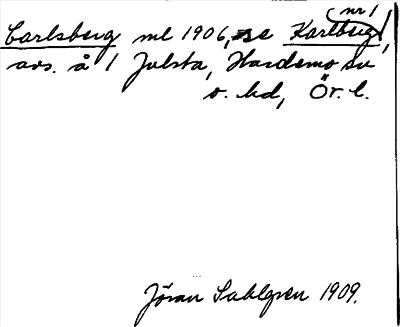 nr 1
Carlsberg ml 1906, se Karlberg,
avs. å 1 Julsta, Hardemo sn
o. hd, Ör. l.
Jöran Sahlgren 1909.